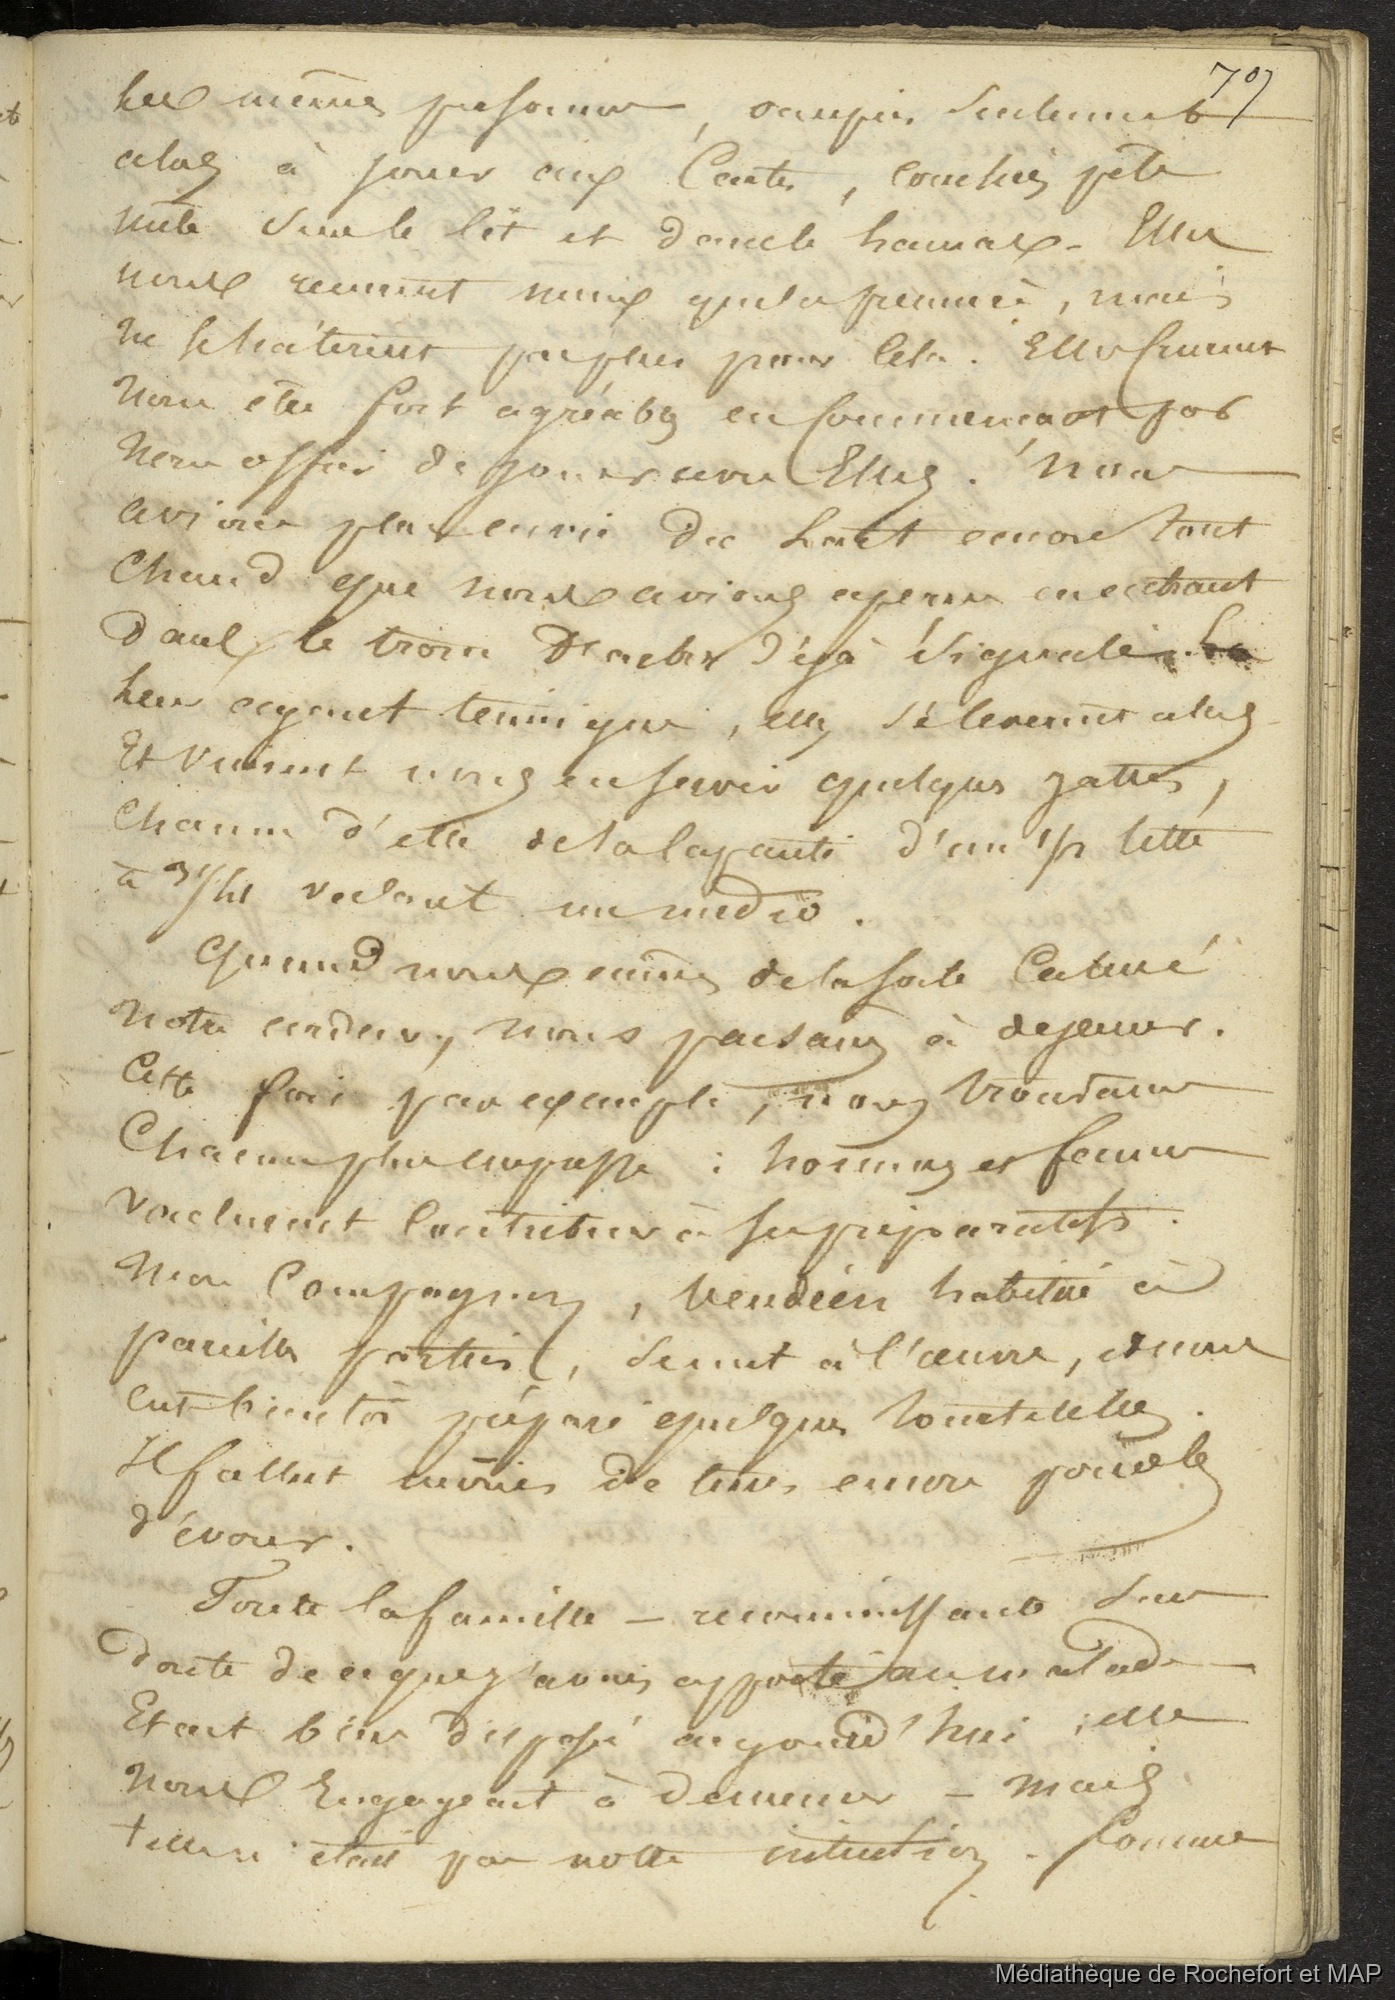 707
les mêmes personnes, occupées seulement
alors à jouer aux Cartes, couchées pêle
mêle sur le lit et dans le hamac. Elles
nous reçurent mieux que la première, mais
ne se hâtèrent pas plus pour cela. Elles crurent
nous être fort agréables en commençant par
nous offrir de jouer avec Elles. Nous
avions plus envie du lait encore tout
Chaud que nous avions aperçu en entrant
dans le tronc D'arbre déjà signalé.
leur ayant témoigné, elles se levèrent alors
Et vinrent nous en servir quelques jattes,
Chacune d'elle de la capacité d'un 1/2 litre
à valant un medio.
Quand nous eûmes de la sorte Calmé
notre ardeur, nous pensâmes à dejeuner.
Cette fois par exemple, nous trouvâmes
Chacun plus empressé : hommes et femmes
voulurent contribuer à ses préparatifs.
Mon Compagnon, Vendéen habitué à
pareilles parties, se mit à l'œuvre, et nous
eut bientôt préparé quelques tourterelles.
Il fallut moins de tems encore pour les
dévorer.
Toute la famille – reconnaissante sans
doute de ce que j'avais apporté au malade
Etait bien disposée aujourd'hui ; elle
nous Engageait à demeurer – mais
telle n'était pas notre intention. Comme
Médiathèque de Rochefort et MAP